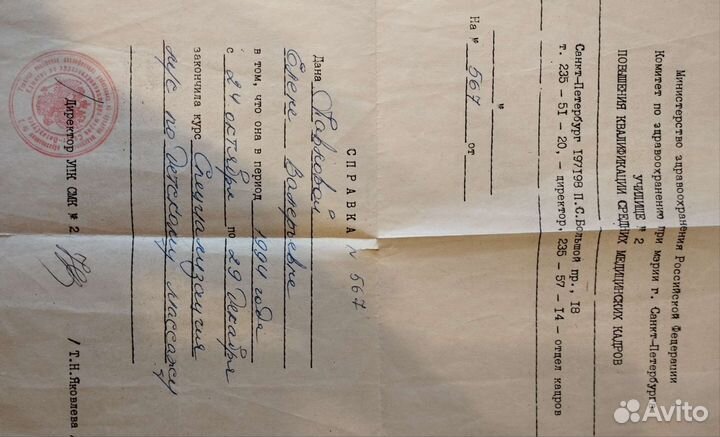 Министерство здравоохранения Российской Федерации
Комитет по здравоохранению при мэрии г. Санкт-Петербурга
УЧИЛИЩЕ № 2
ПОВЫШЕНИЯ КВАЛИФИКАЦИИ СРЕДНИХ МЕДИЦИНСКИХ КАДРОВ
Санкт-Петербург 197198 П.С.Большой пр., 18
т. 235 - 51 - 20, - директор, 235 - 57 - 14 - отдел кадров
"
На № 567 от
СПРАВКА № 567
Дана
Елене Валерьевне
в том, что она в период 1994 года
с 24 октября по 29 декабря
закончила курс Специализация
м/с по детскому массажу
Директор УПК СМК № 2 / Т.Н.Яковлева
Avito